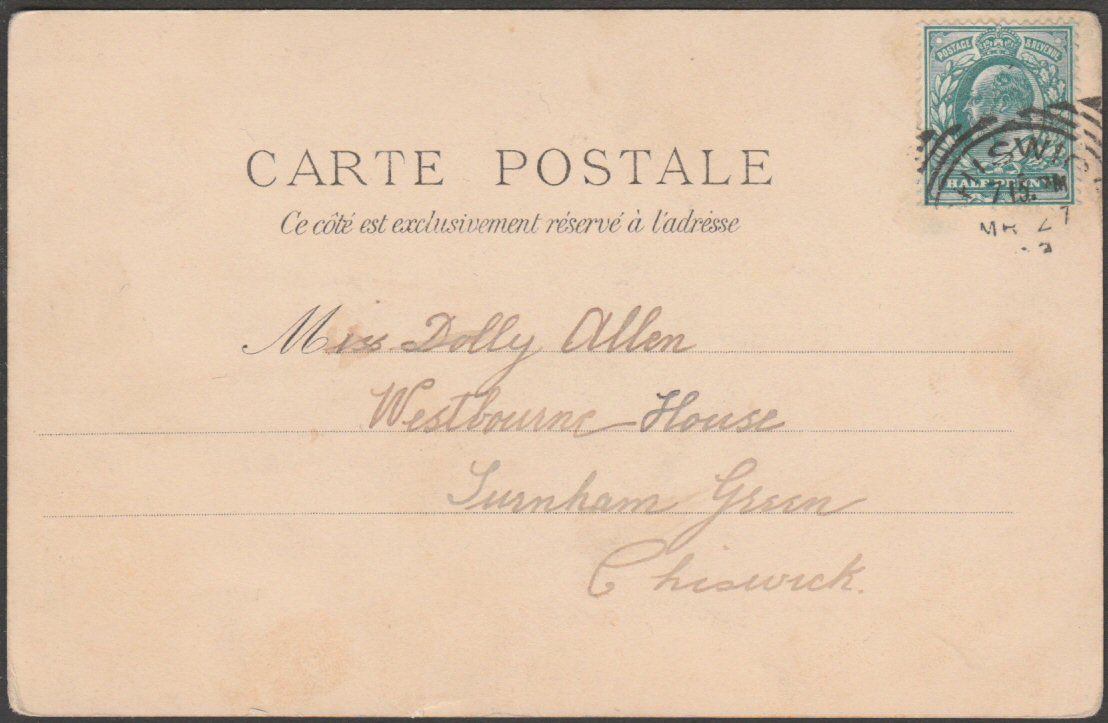 POSTAGE & REVENUE
HALF PENNY
CHISWICK
7 15. PM
MR 27
CARTE POSTALE
Ce côté est exclusivement réservé à l'adresse
Miss Dolly Allen
Westbourne House
Turnham Green
Chiswick.